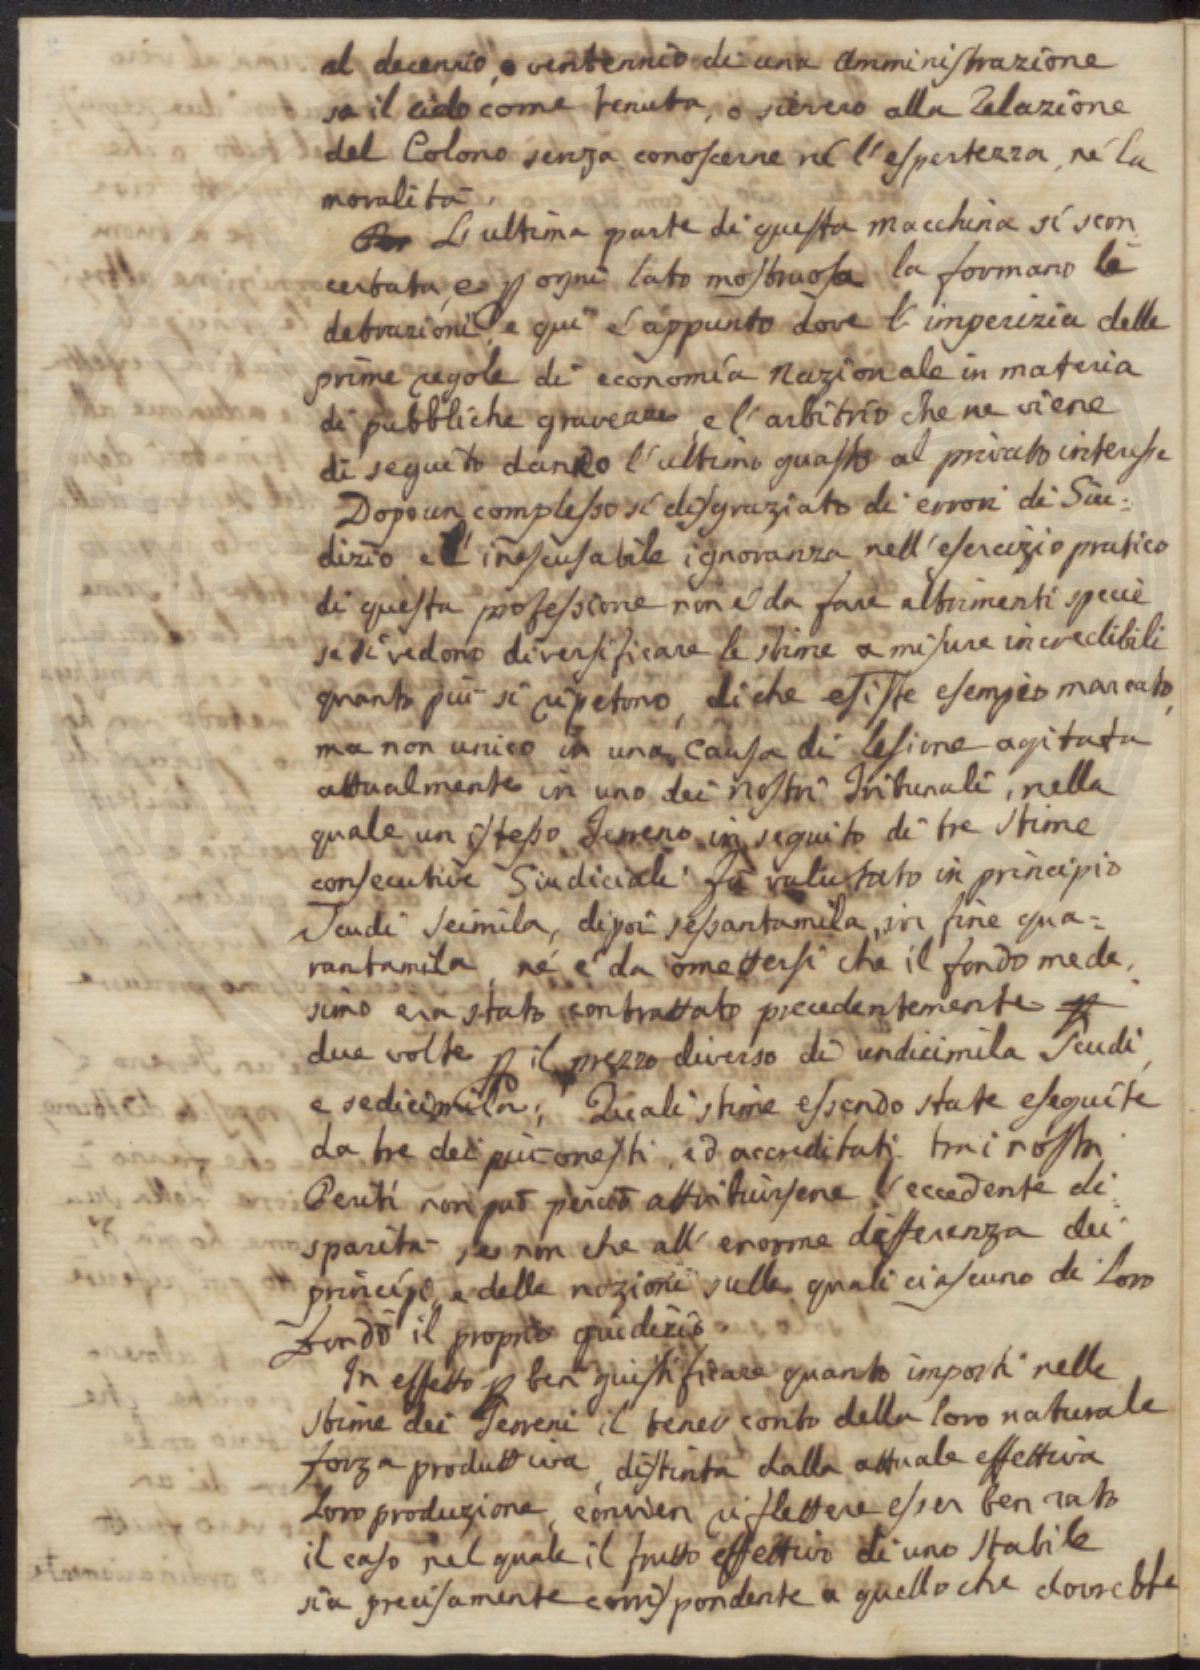 al decennio, o ventennio di una Amministrazione
sa il cielo come tenuta, o sievero alla Relazione
del Colono senza conoscerne né l'espertezza, né la
moralità
L'ultima parte di questa macchina sí scon
certata, e p ogni lato mostruosa la formano le
detrazioni, e qui è appunto dove l'imperizia delle
prime regole di economía Nazionale in materia
di pubbliche gravezze, e l'arbitrio che ne viene
di seguito danno l'ultimo guasto al privato interesse
Dopo un complesso sí disgraziato di errori di Giu=
dizio e l'inescusabile ignoranza nell'esercizio pratico
di questa professione non è da fare altrimenti specie
se si vedono diversificare le stime a misure incredibili
quanto più si ripetono, di che esiste esempio marcato,
ma non unico in una Causa di lesione agitata
attualmente in uno dei nostri Tribunali, nella
quale un istesso Terreno in seguito di tre stime
consecutive Giudiciali fu valutato in principio
Scudi Seimila, dipoi sessantamila, in fine qua=
rantamila, né è da omettersi che il fondo mede,
simo era stato contrattato precedentemente
due volte p il prezzo diverso di undicimila Scudi,
e sedicimila; Quali stime essendo state eseguite
da tre dei più onesti, ed accreditati tra i nostri
Periti non può perciò attribuirsene l'eccedente di
sparità se non che all'enorme differenza dei
principi, e delle nozioni sulle quali ciascuno di Loro
fondò il proprio giudizio.
In effetto p ben giustificare quanto importi nelle
stime dei Terreni il tener conto della loro naturale
forza produttiva, distinta dalla attuale effettiva
Loro produzione, convien riflettere esser ben rato
il caso nel quale il frutto effettivo di uno Stabile
sia precisamente corrispondente a quello che dovrebbe